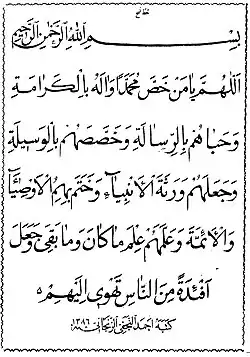 بِسْمِ اللهِ الرَّحْمٰنِ الرَّحِيمِ
اَللّٰهُمَّ يَا مَنْ خَصَّ مُحَمَّدًا وَاٰلَهُ بِالْكَرَامَةِ
وَحَبَاهُمْ بِالرِّسَالَةِ وَخَصَّصَهُمْ بِالْوَسِيلَةِ
وَجَعَلَهُمْ وَرَثَةَ الْاَنْبِيَاءِ وَخَتَمَ بِهِمُ الْاَوْصِيَاءَ
وَالْاَئِمَّةَ وَعَلَّمَهُمْ عِلْمَ مَا كَانَ وَمَا بَقِيَ وَجَعَلَ
اَفْئِدَةً مِنَ النَّاسِ تَهْوِى اِلَيْهِمْ
كتبه احمد النجفي الزنجاني ١٣٨٦